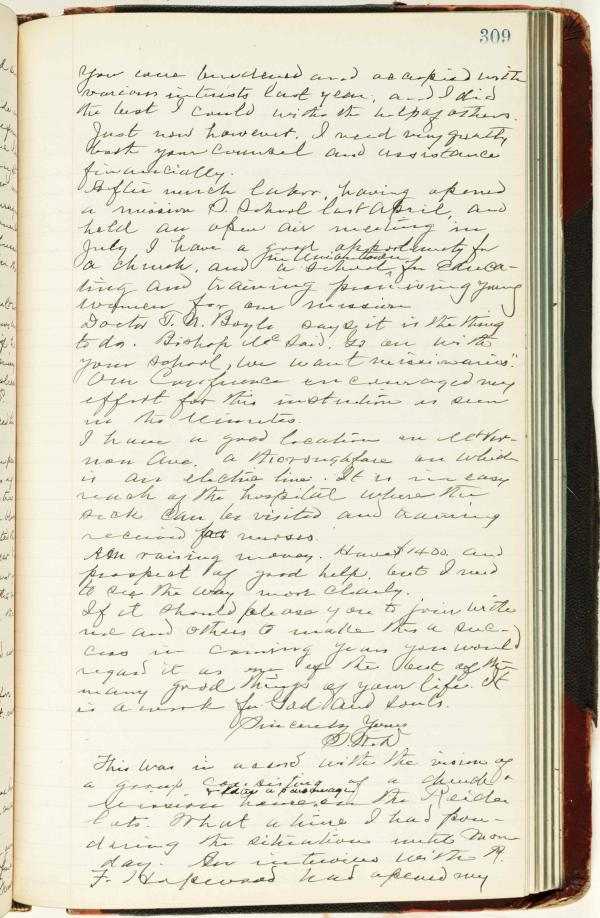 309
You were burdened and occupied with
various interests last year, and I did
the best I could with the help of others.
Just now however, I need very greatly
both your counsel and assistance
financially.
After much labor, having opened
a mission S. School last April, and
held an open air meeting in
July I have a good opportunity for
in Uniontown
a church, and a school, for educa-
ting and training promising young
women for our mission
Doctor T. N. Boyle says, it is the thing
to do. Bishop Mc said, Go on with
your school, we want missionaries".
Our Conference encouraged my
effort for this institution as seen
in the Minutes.
I have a good location on Mt Ver-
non Ave, a thoroughfare on which
is an electric line. It is in easy
reach of the hospital where the
sick can be visited and training
received for nurses.
Am raising money. Have $1400. and
prospect of good help, but I need
to see the way more clearly.
If it should please you to join with
me and others to make this a suc-
cess in coming years you would
regard it as one of the best of the
many good things of your life. It
is a work for God and souls.
Sincerely Yours
This was in accord with the vision of
a group consisting of a church
& also a parsonage
mission home, on the
lots. What a time I had pon-
dering the situation until Mon
day. An interview with
F. Hopwood had opened my